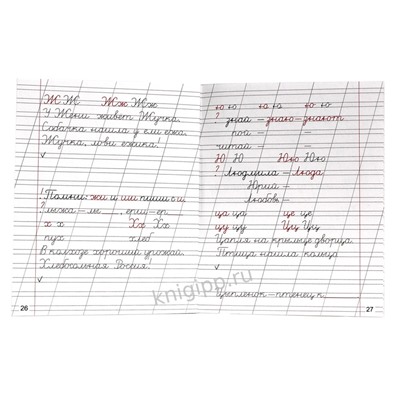 Ж Ж Жж Жж
У Жени живёт Жучка.
Собачка нашла у ели ежа.
Жучка, лови ёжика!
✓
! Помни: жи ши пиши с и.
? лыжа – лы ёрш – ер
х х Хх Хх
пух хлеб
В колхозе хороший урожай.
Хлебосольная Россия.
✓
26
ю ю ю ю ю ю
? знай – знаю – знают
рой – –
читай – –
Ю Ю Юю Юю
? Людмила – Люда
Юрий –
Любовь –
ца ца це це
цу цу Цц Цц
Цапля на крыльце дворца.
Птица нашла кольцо.
✓
Цыплёнок – птенец к
27
knigipp.ru